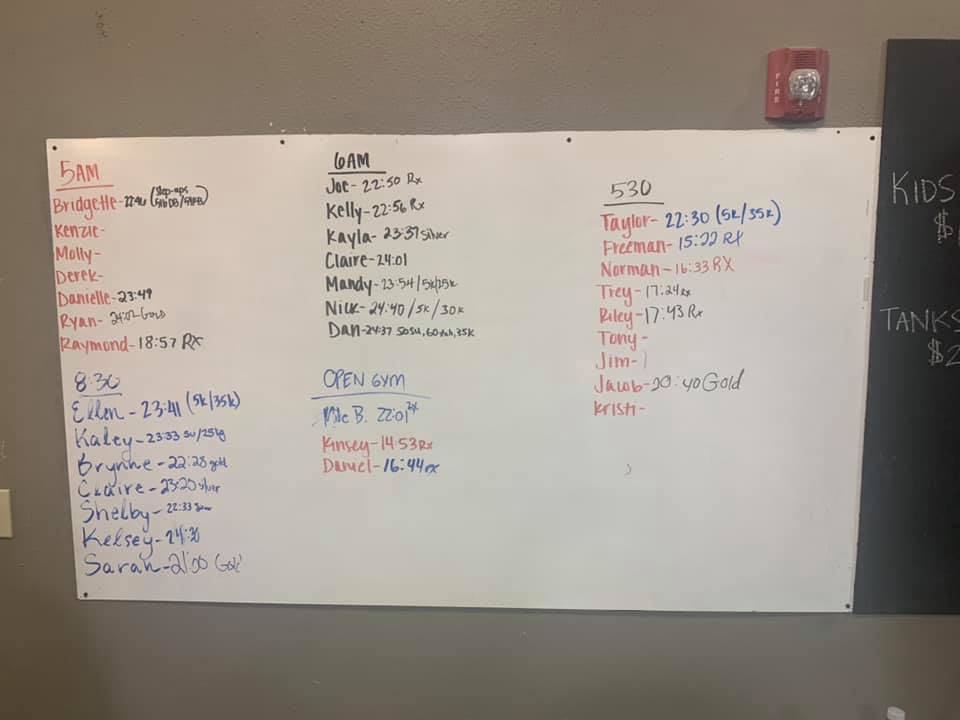 5AM
Bridgette- (step-ups
Kenzie-
Molly-
Derek-
Danielle-23:49
Ryan- Gold
Raymond-18:57 Rx
8:30
Ellen-23:41 (5k/35k)
Kaley-23:33
Brynne-22:28 gold
Claire-23:20 silver
Shelby-22:33
Kelsey-24:30
Sarah-21:00 Gold
6AM
Joe-22:50 Rx
Kelly-22:56 Rx
Kayla-23:37 Silver
Claire-24:01
Mandy-23:54/5k/25k
Nick-24:40/5k/30k
Dan-24:37 35k
OPEN GYM
B. 22:01
Kinsey-14:53 Rx
Daniel-16:44 rx
530
Taylor-22:30 (5k/35k)
Freeman-15:22 RX
Norman-16:33 RX
Trey-17:24 rx
Riley-17:43 Rx
Tony-
Jim-
Jacob-20:40 Gold
Kristi-
FIRE
KIDS
$
TANKS
$2